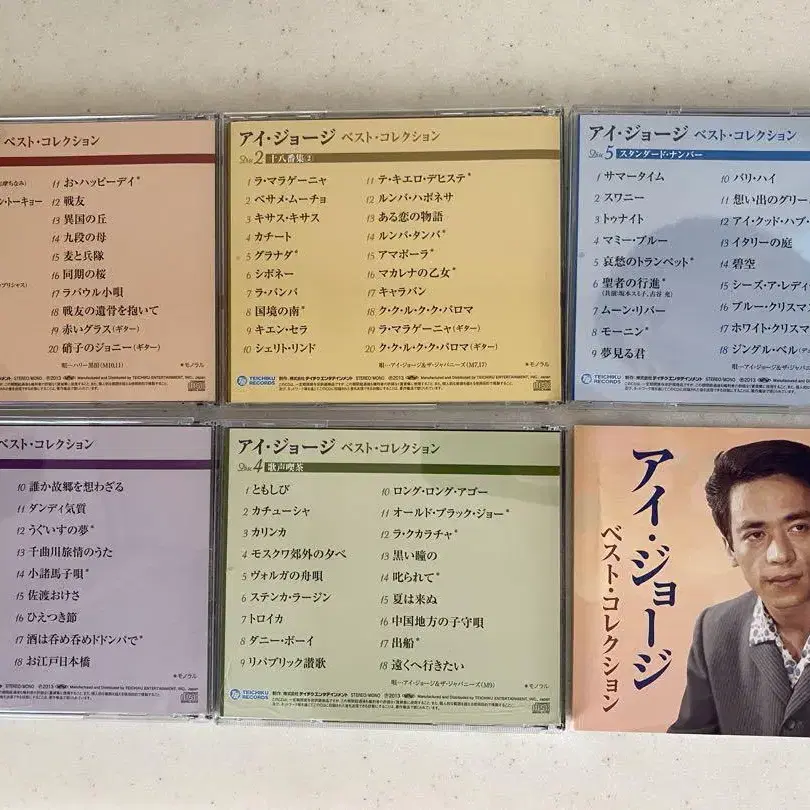 ベスト・コレクション
11 お、ハッピーデイ*
12 戦友
13 異国の丘
14 九段の母
15 麦と兵隊
16 同期の桜
17 ラバウル小唄
18 戦友の遺骨を抱いて
19 赤いグラス(ギター)
20 硝子のジョニー(ギター)
唄…ハリー黒田(M10,11)
*モノラル
アイ・ジョージ ベスト・コレクション
Disc 2 十八番集 2
1 ラ・マラゲーニャ
2 ベサメ・ムーチョ
3 キサス・キサス
4 カチート
5 グラナダ*
6 シボネー
7 ラ・バンバ
8 国境の南*
9 キエン・セラ
10 シェリト・リンド
11 テ・キエロ・デヒステ*
12 ルンバ・ハボネサ
13 ある恋の物語
14 ルンバ・タンバ*
15 アマポーラ*
16 マカレナの乙女*
17 キャラバン
18 ク・ク・ル・ク・ク・パロマ
19 ラ・マラゲーニャ(ギター)
20 ク・ク・ル・ク・ク・パロマ(ギター)
唄…アイ・ジョージ&ザ・ジャパニーズ(M7,17)
*モノラル
TEICHIKU RECORDS
制作:株式会社テイチクエンタテインメント STEREO/MONO Ⓟ2013 Manufactured and Distributed by TEICHIKU ENTERTAINMENT, INC., Japan
アイ・ジョージ ベスト・コレクション
Disc 5 スタンダード・ナンバー
1 サマータイム
2 スワニー
3 トゥナイト
4 マミー・ブルー
5 哀愁のトランペット*
6 聖者の行進*
(共演:坂本スミ子、古谷 充)
7 ムーン・リバー
8 モーニン*
9 夢見る君
10 バリ・ハイ
11 想い出のグリー
12 アイ・クッド・ハブ・
13 イタリーの庭
14 碧空
15 シーズ・ア・レディ
16 ブルー・クリスマ
17 ホワイト・クリスマ
18 ジングル・ベル
唄…アイ・ジョージ&ザ・ジャパニーズ
TEICHIKU RECORDS
ベスト・コレクション
10 誰か故郷を想わざる
11 ダンディ気質
12 うぐいすの夢*
13 千曲川旅情のうた
14 小諸馬子唄*
15 佐渡おけさ
16 ひえつき節
17 酒は呑め呑めドドンパで*
18 お江戸日本橋
*モノラル
アイ・ジョージ ベスト・コレクション
Disc 4 歌声喫茶
1 ともしび
2 カチューシャ
3 カリンカ
4 モスクワ郊外の夕べ
5 ヴォルガの舟唄
6 ステンカ・ラージン
7 トロイカ
8 ダニー・ボーイ
9 リパブリック讃歌
10 ロング・ロング・アゴー
11 オールド・ブラック・ジョー*
12 ラ・クカラチャ*
13 黒い瞳の
14 叱られて*
15 夏は来ぬ
16 中国地方の子守唄
17 出船*
18 遠くへ行きたい
唄…アイ・ジョージ&ザ・ジャパニーズ(M9)
*モノラル
TEICHIKU RECORDS
制作:株式会社テイチクエンタテインメント STEREO/MONO Ⓟ2013 Manufactured and Distributed by TEICHIKU ENTERTAINMENT, INC., Japan
アイ・ジョージ
ベスト・コレクション